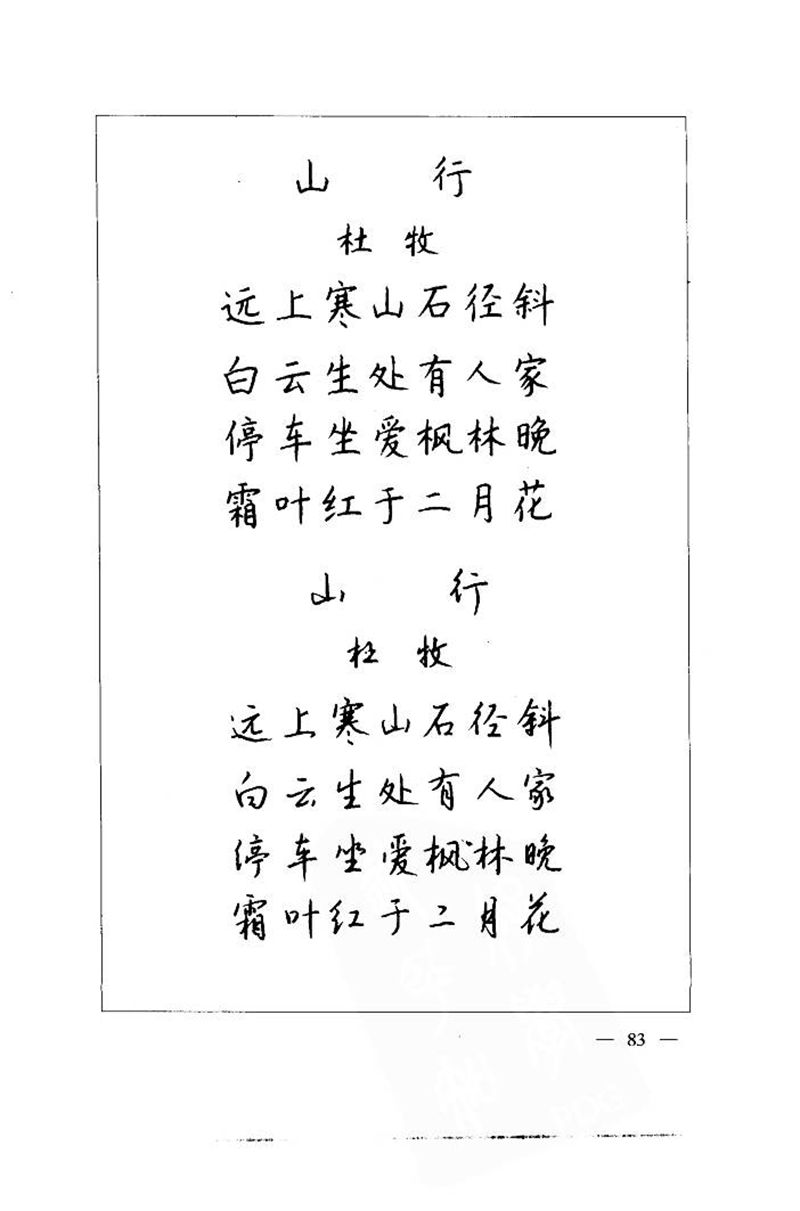 山 行
杜 牧
远上寒山石径斜
白云生处有人家
停车坐爱枫林晚
霜叶红于二月花
山 行
杜 牧
远上寒山石径斜
白云生处有人家
停车坐爱枫林晚
霜叶红于二月花
— 83 —